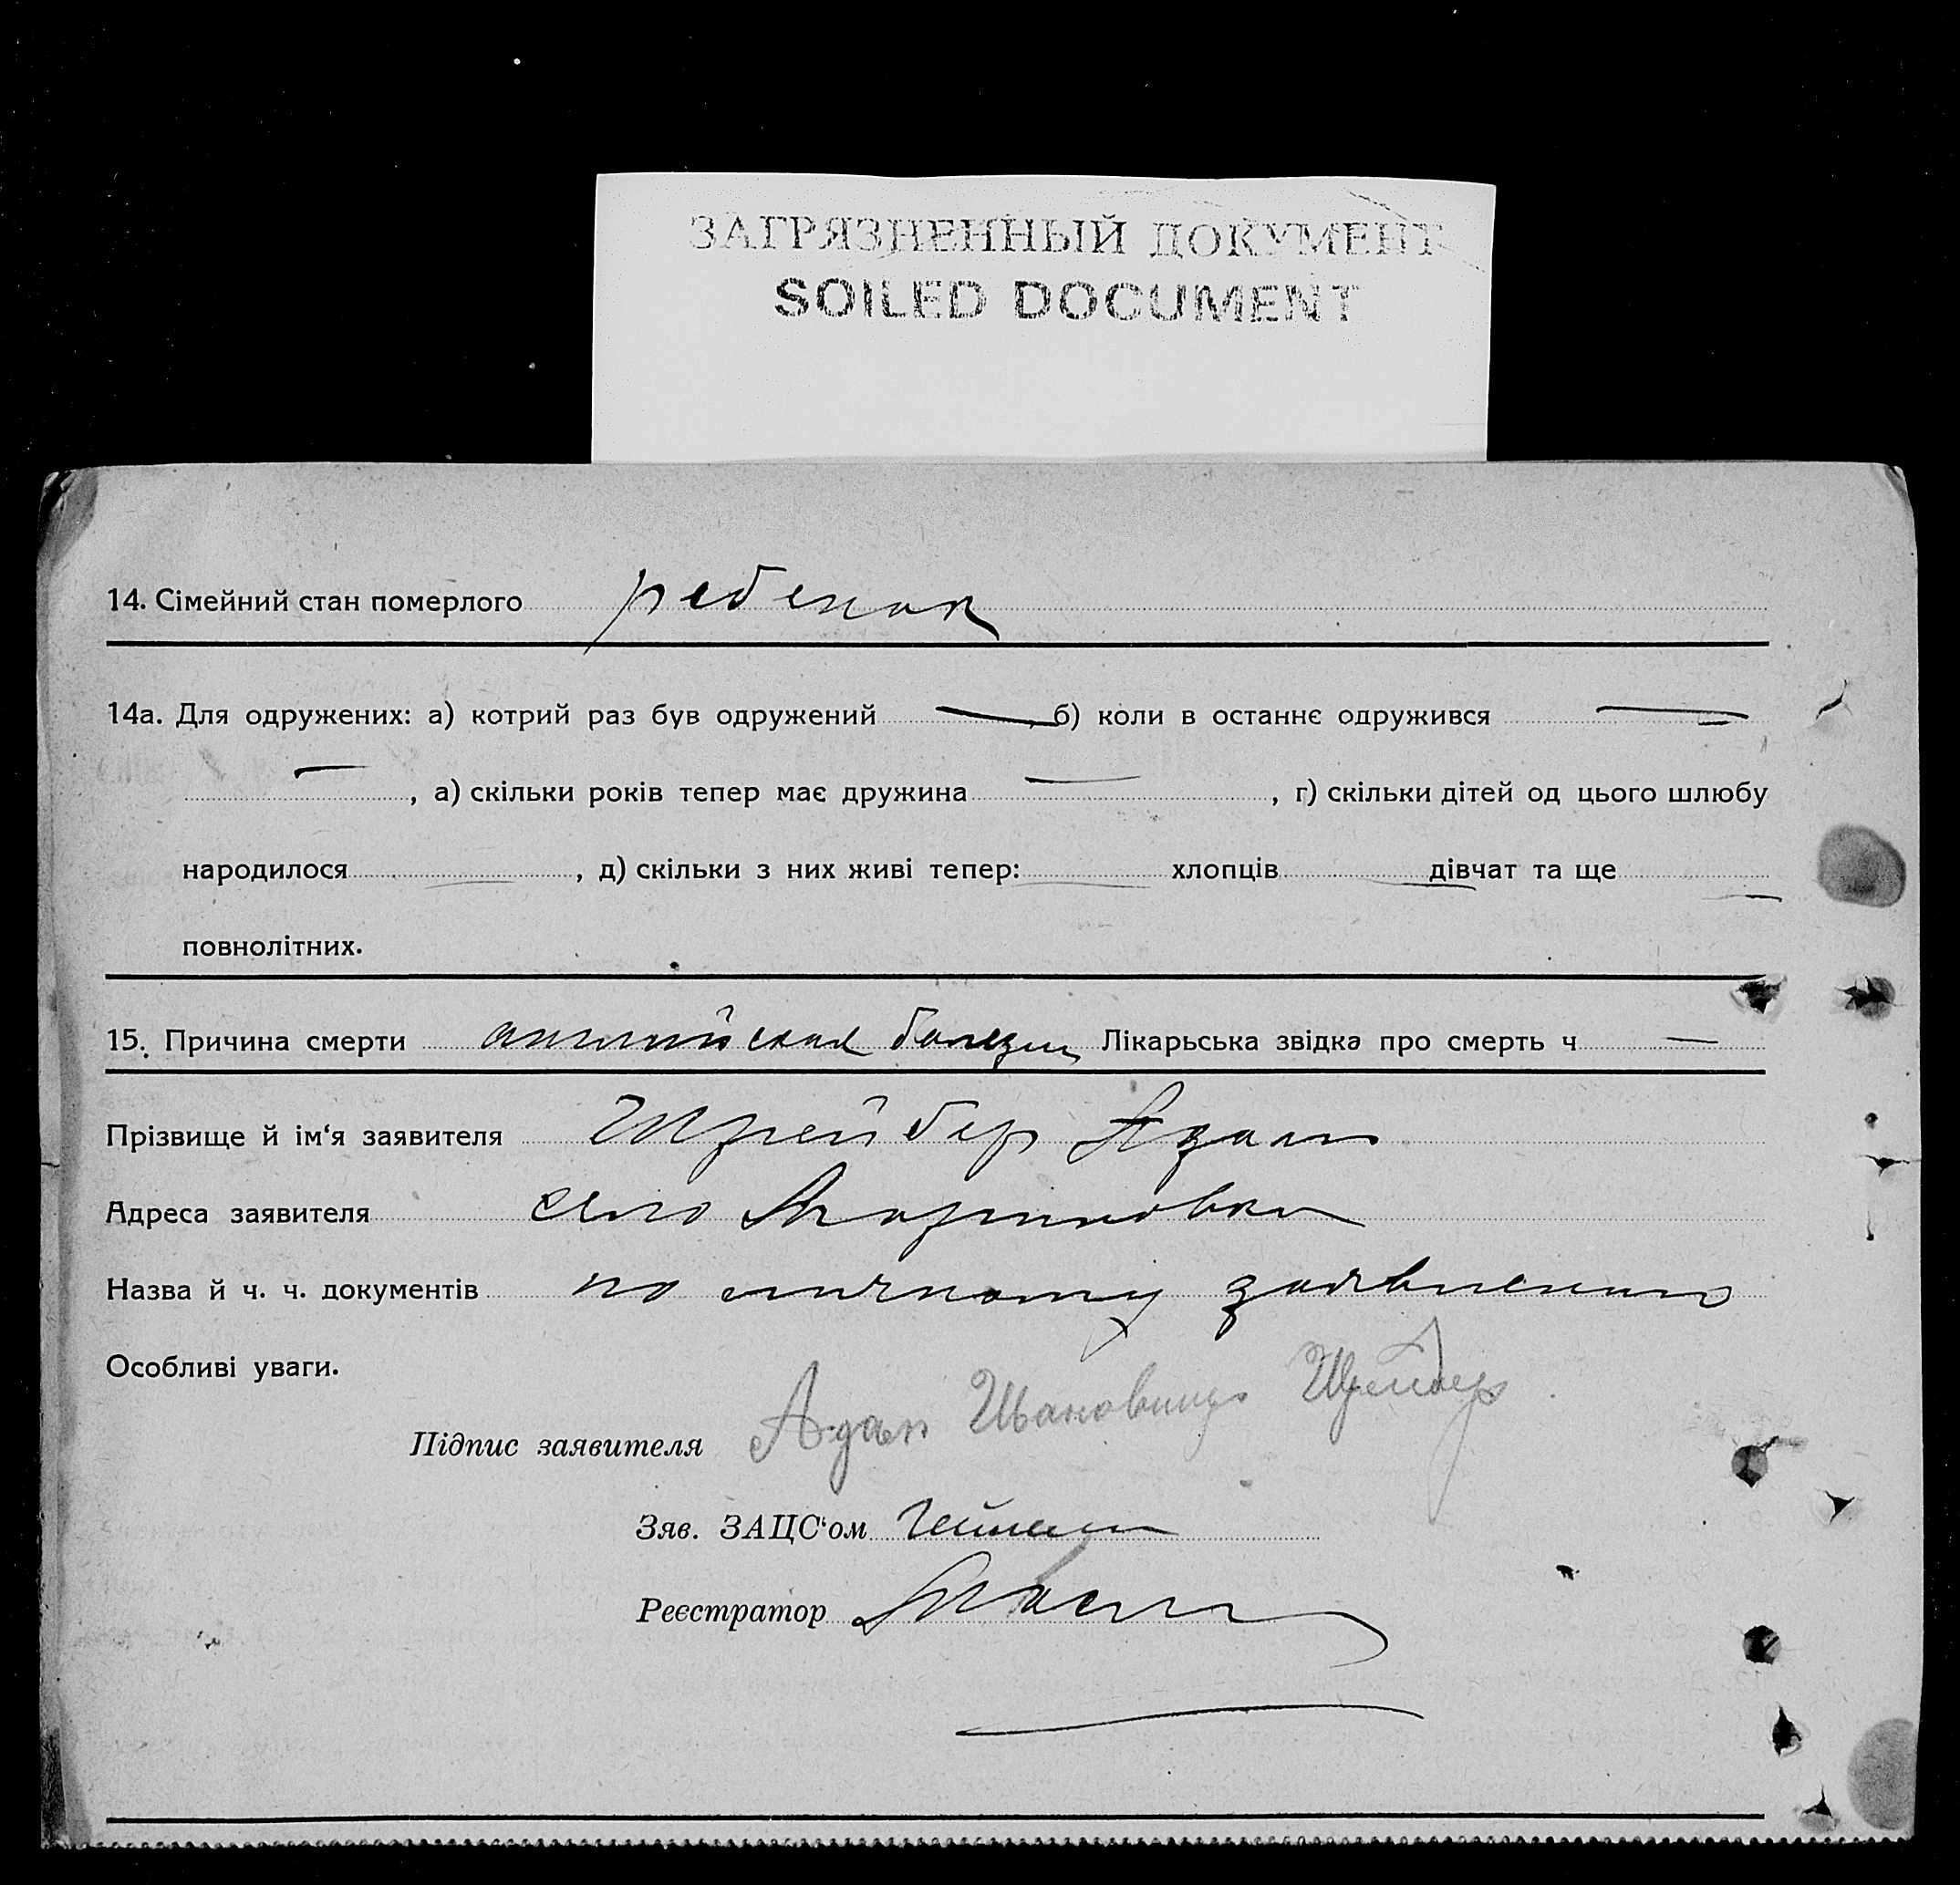 ЗАГРЯЗНЕННЫЙ ДОКУМЕНТ
SOILED DOCUMENT
14. Сімейний стан померлого ребенок
14а. Для одружених: а) котрий раз був одружений — б) коли в останнє одружився —
—, а) скільки років тепер має дружина —, г) скільки дітей од цього шлюбу
народилося —, д) скільки з них живі тепер: — хлопців — дівчат та ще —
повнолітних.
15. Причина смерти английская болезнь Лікарьська звідка про смерть ч —
Прізвище й ім‘я заявителя Шрейбер Адам
Адреса заявителя село Мартиновка
Назва й ч. ч. документів по личному заявлению
Особливі уваги.
Підпис заявителя Адам Ивановичь Шрейбер
Зяв. ЗАЦС‘ом
Реєстратор